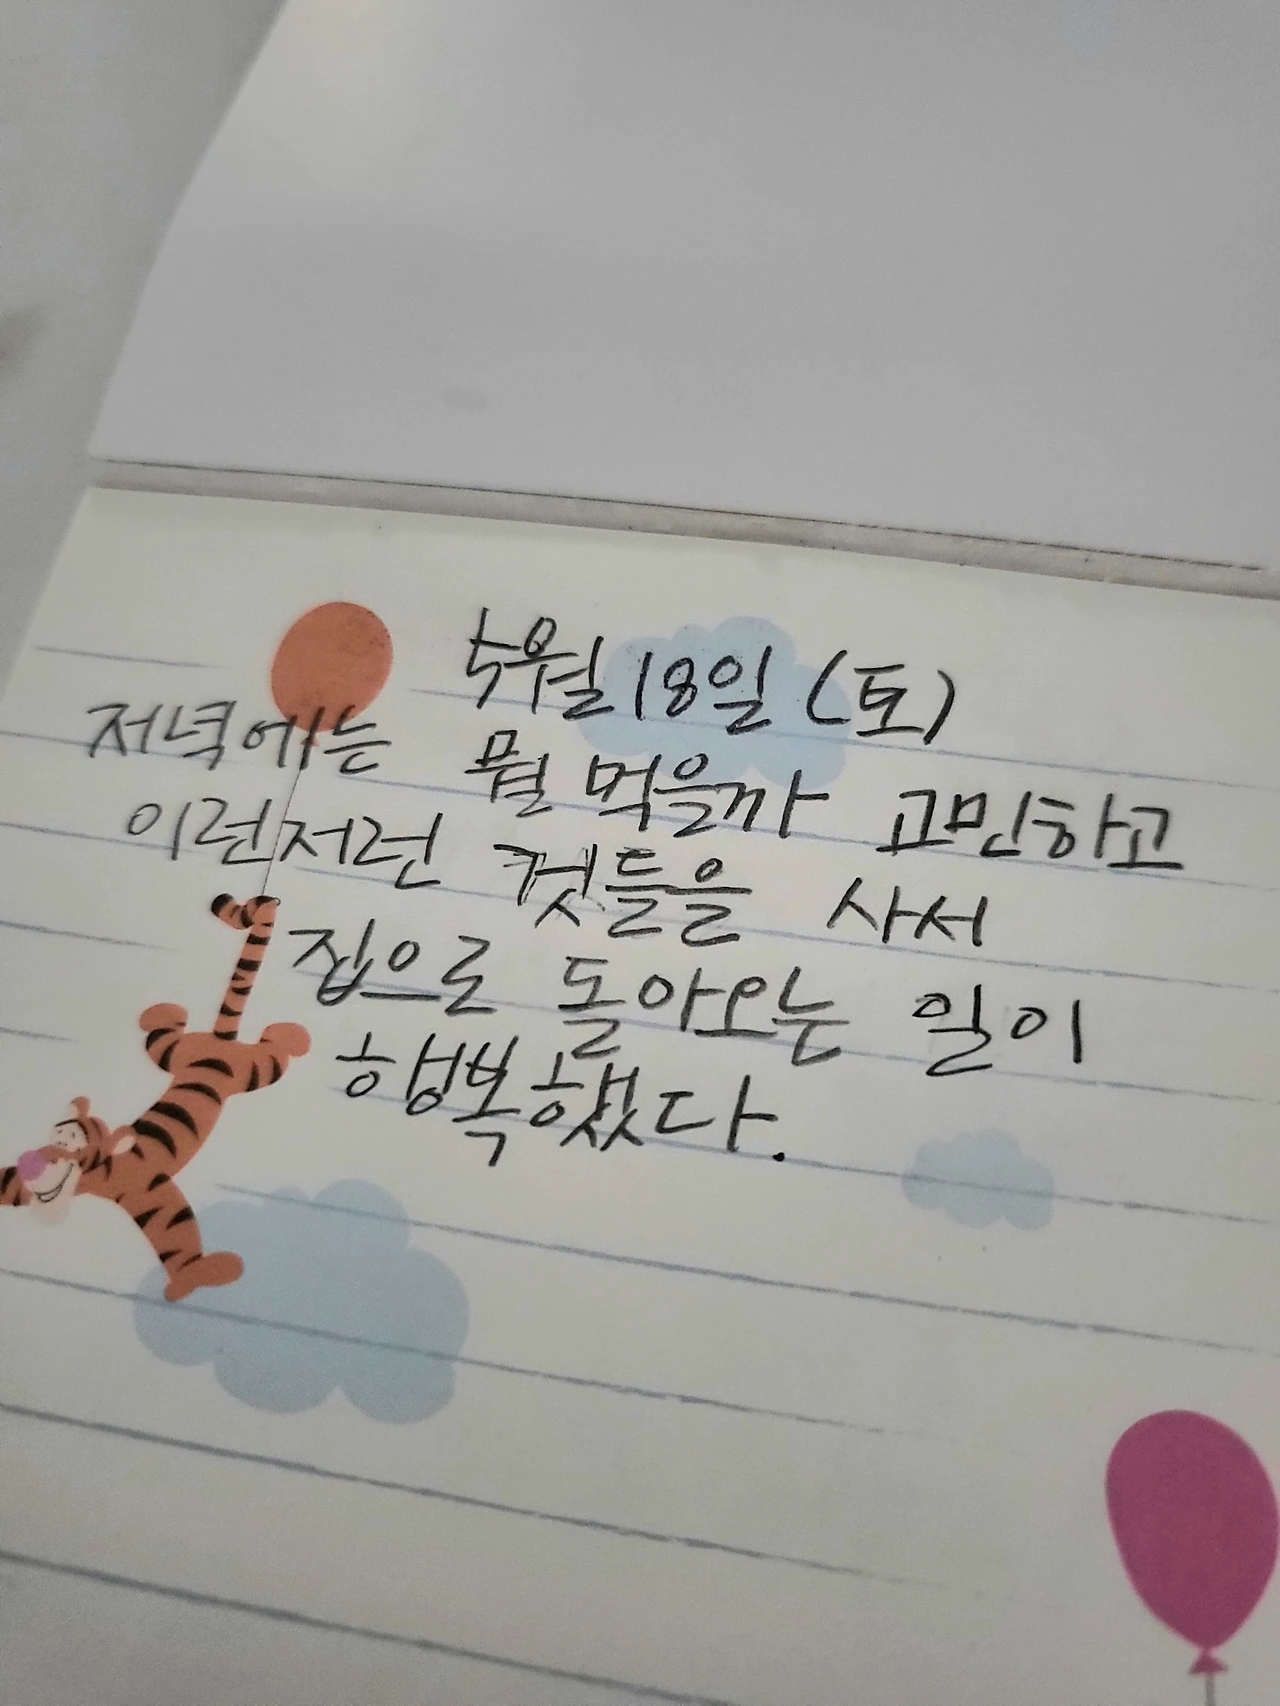 5월 18일 (토)
저녁에는 뭘 먹을까 고민하고
이런저런 것들을 사서
집으로 돌아오는 일이
행복했다.